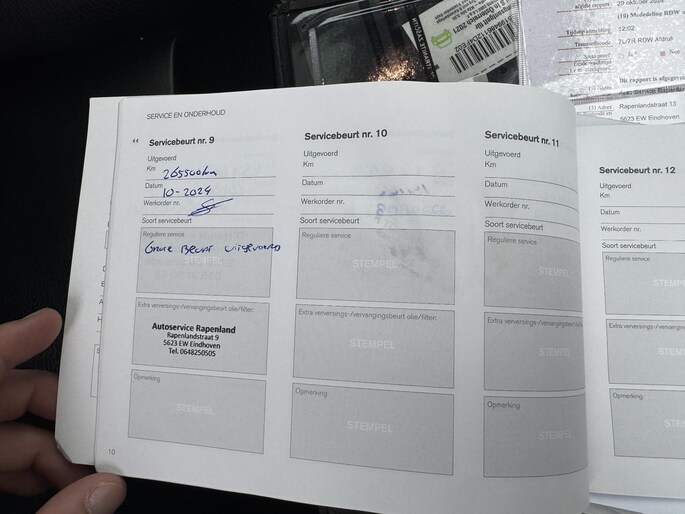 29 oktober
(19) Mededeling RDW
Tijdstip
12:02
7L/7R RDW Afdruk
Dit rapport is afgegeven
Rapenlandstraat 13
5623 EW Eindhoven
SERVICE EN ONDERHOUD
Servicebeurt nr. 9
Uitgevoerd
Km 265500km
Datum 10-2024
Werkorder nr.
Soort servicebeurt
Reguliere service
STEMPEL
Grote Beurt uitgevoerd
Extra verversings-/vervangingsbeurt olie/filter:
Autoservice Rapenland
Rapenlandstraat 9
5623 EW Eindhoven
Tel. 0648250505
Opmerking
STEMPEL
10
Servicebeurt nr. 10
Uitgevoerd
Km
Datum
Werkorder nr.
Soort servicebeurt
Reguliere service
STEMPEL
Extra verversings-/vervangingsbeurt olie/filter:
STEMPEL
Opmerking
STEMPEL
Servicebeurt nr. 11
Uitgevoerd
Km
Datum
Werkorder nr.
Soort servicebeurt
Reguliere service
STE
Extra verversings-/vervangingsbeurt
STE
Opmerking
STE
Servicebeurt nr. 12
Uitgevoerd
Km
Datum
Werkorder nr.
Soort servicebeurt
Reguliere service
STEM
Extra verversings-/vervang
STEM
Opmerking
STE